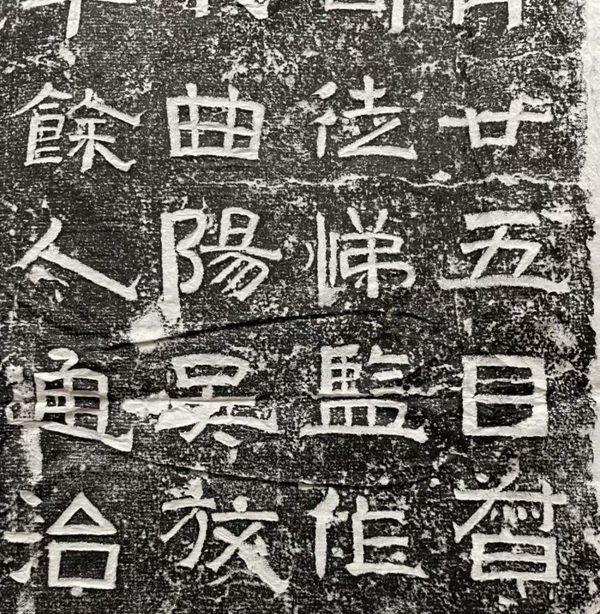 廿五日督
徒悌監作
曲陽吳放
餘人通治